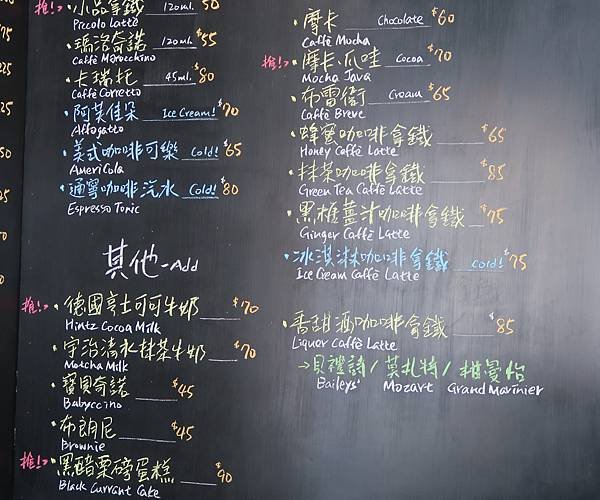 75
225
25
50
推! 小品拿鐵 120ml. 50
Piccolo Latte
瑪洛奇諾 120ml. $55
Caffé Marocchino
卡瑞托 45ml. $80
Caffé Corretto
阿芙佳朵 Ice Cream! $70
Affogatto
美式咖啡可樂 Cold! $65
AmeriCola
通寧咖啡汽水 Cold! $80
Espresso Tonic
其他-Add
推! 德國亨士可可牛奶 $70
Hintz Cocoa Milk
宇治清水抹茶牛奶 $70
Matcha Milk
寶貝奇諾 $45
Babyccino
布朗尼 $45
Brownie
推! 黑醋栗磅蛋糕 $90
Black Currant Cake
摩卡 Chocolate $60
Caffé Mocha
推! 摩卡爪哇 Cocoa $70
Mocha Java
布雷衛 Cream $65
Caffé Breve
蜂蜜咖啡拿鐵 $65
Honey Caffé Latte
抹茶咖啡拿鐵 $85
Green Tea Caffé Latte
黑糖薑汁咖啡拿鐵 $75
Ginger Caffé Latte
冰淇淋咖啡拿鐵 Cold! $75
Ice Cream Caffé Latte
香甜酒咖啡拿鐵 $85
Liquor Caffé Latte
→貝禮詩/莫札特/柑曼怡
Baileys' Mozart Grand Marinier